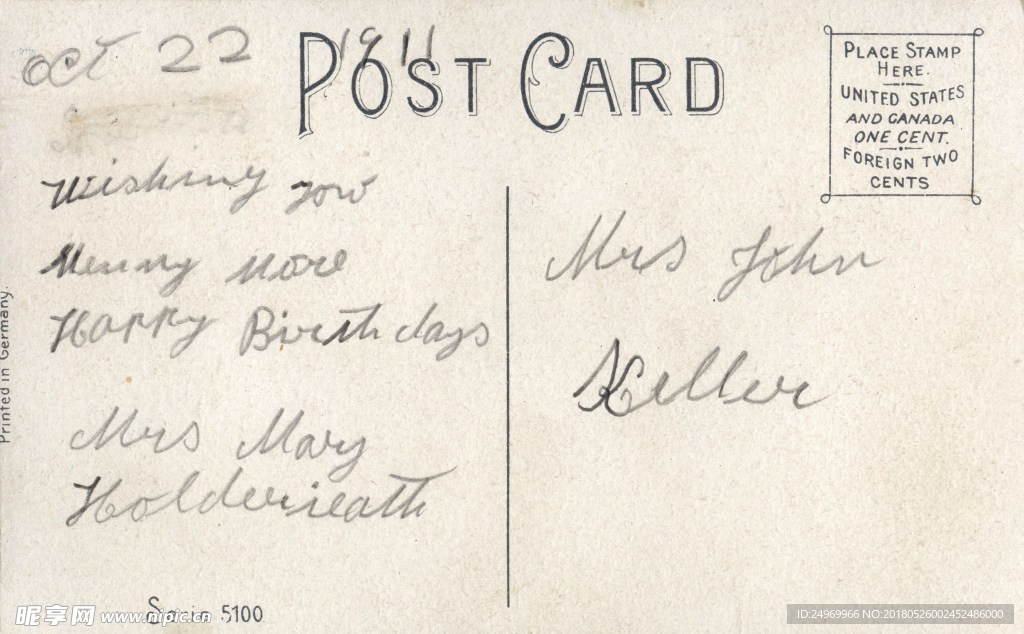 Oct 22 1911
POST CARD
PLACE STAMP
HERE.
UNITED STATES
AND CANADA
ONE CENT.
FOREIGN TWO
CENTS
Wishing you
Menny more
Happy Birthdays
Mrs Mary
Mrs John
Keller
Printed in Germany.
Serie 5100
昵享网 www.nipic.cn
ID:24969966 NO:20180526002452486000